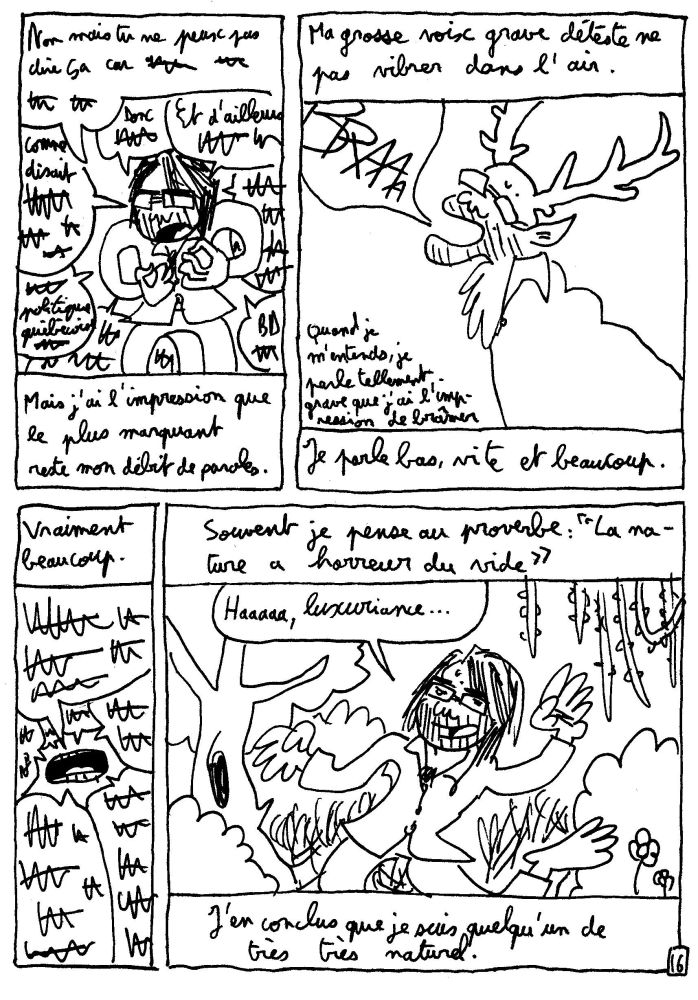 Non mais tu ne peux pas
dire ça car
Donc
Et d'ailleurs
comme
disait
politique
québécois
BD
Mais j'ai l'impression que
le plus marquant
reste mon débit de paroles.
Ma grosse voix grave déteste ne
pas vibrer dans l'air.
Quand je
m'entends, je
parle tellement
grave que j'ai l'imp-
ression de brâmer
Je parle bas, vite et beaucoup.
Vraiment
beaucoup.
Souvent je pense au proverbe : "La na-
ture a horreur du vide"
Haaaaa, luxuriance...
J'en conclus que je suis quelqu'un de
très très naturel.
16